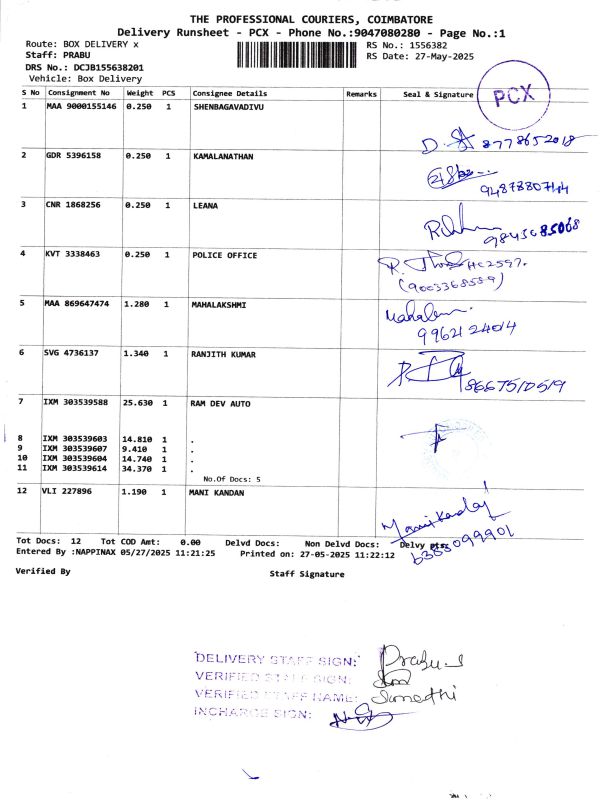 THE PROFESSIONAL COURIERS, COIMBATORE
Delivery Runsheet - PCX - Phone No.:9047080280 - Page No.:1
Route: BOX DELIVERY x RS No.: 1556382
Staff: PRABU RS Date: 27-May-2025
DRS No.: DCJB155638201
Vehicle: Box Delivery
PCX
S No Consignment No Weight PCS Consignee Details Remarks Seal & Signature
1 MAA 9000155146 0.250 1 SHENBAGAVADIVU
8778652018
2 GDR 5396158 0.250 1 KAMALANATHAN
3 CNR 1868256 0.250 1 LEANA
4 KVT 3338463 0.250 1 POLICE OFFICE
HC2597.
(9003368589)
5 MAA 869647474 1.280 1 MAHALAKSHMI
99621 24014
6 SVG 4736137 1.340 1 RANJITH KUMAR
7 IXM 303539588 25.630 1 RAM DEV AUTO
8 IXM 303539603 14.810 1 .
9 IXM 303539607 9.410 1 .
10 IXM 303539604 14.740 1 .
11 IXM 303539614 34.370 1 .
No.Of Docs: 5
12 VLI 227896 1.190 1 MANI KANDAN
6383099901
Tot Docs: 12 Tot COD Amt: 0.00 Delvd Docs: Non Delvd Docs: Delvy pts:
Entered By :NAPPINAX 05/27/2025 11:21:25 Printed on: 27-05-2025 11:22:12
Verified By Staff Signature
DELIVERY STAFF SIGN: Prabu
VERIFIED STAFF SIGN:
VERIFIED STAFF NAME:
INCHARGE SIGN: